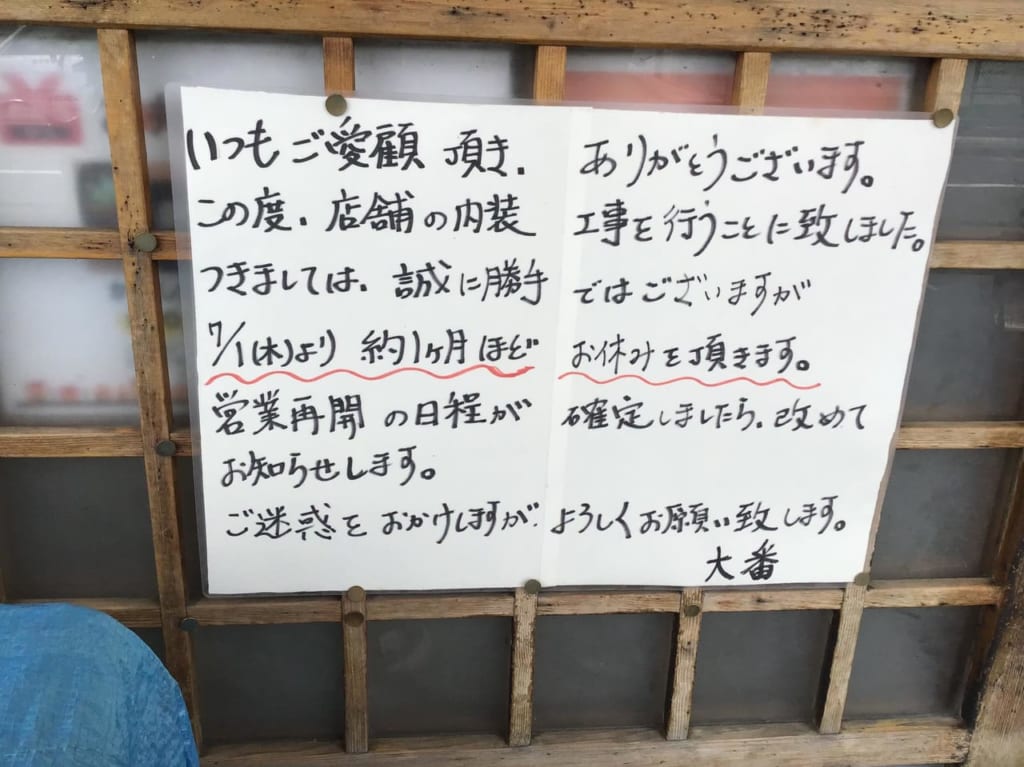 いつもご愛顧頂き、ありがとうございます。
この度、店舗の内装工事を行うことに致しました。
つきましては、誠に勝手ではございますが
7/1(木)より約1ヶ月ほどお休みを頂きます。
営業再開の日程が確定しましたら、改めて
お知らせします。
ご迷惑をおかけしますが、よろしくお願い致します。
大番